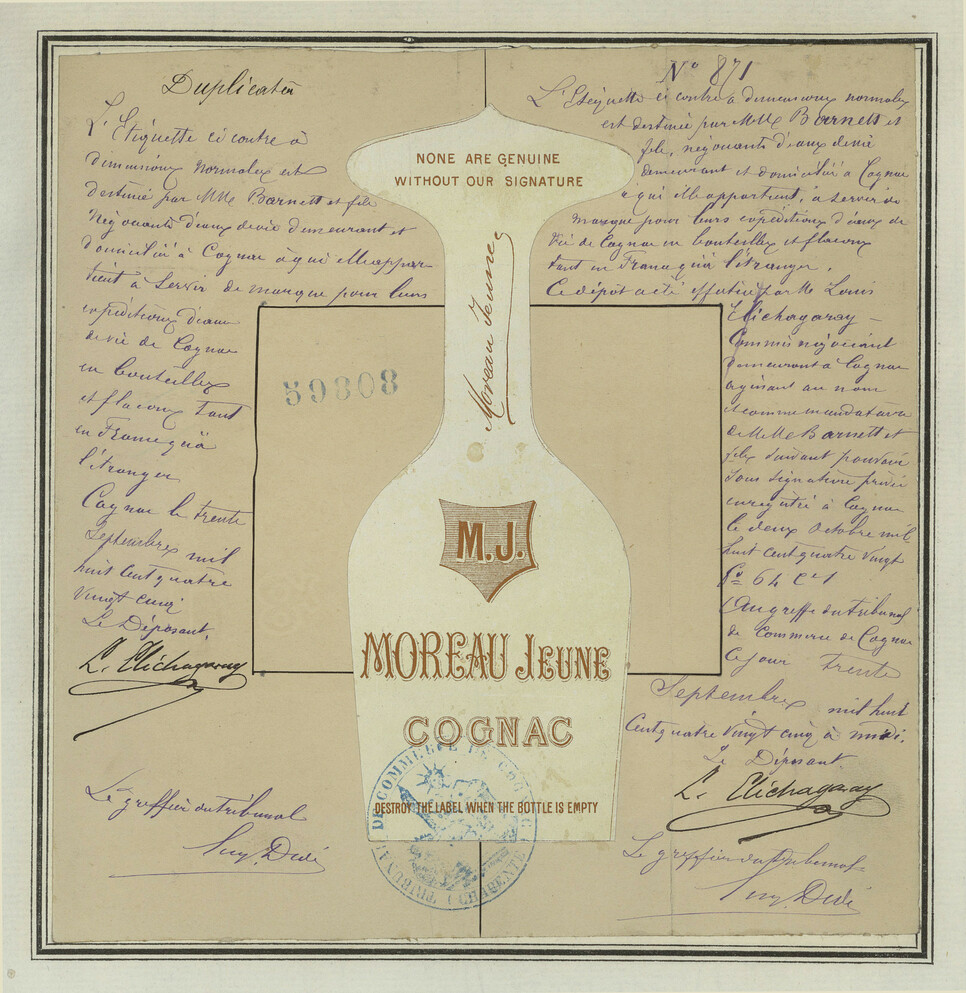 Duplicata
L'Etiquette ci contre à
dimensions normales est
destinée par MM. Barnett et fils
Négociants d'eaux de vie demeurant et
domiciliés à Cognac à qui elle appar-
tient à servir de marque pour leurs
expéditions d'eaux
de vie de Cognac
en bouteilles
et flacons tant
en France qu'à
l'étranger
Cognac le trente
Septembre mil
huit cent quatre
vingt cinq
Le Déposant,
L. Elichagaray
Le greffier du tribunal
N° 871
L'Etiquette ci contre à dimensions normales
est destinée par MM. Barnett et
fils, négociants d'eaux de vie
demeurant et domiciliés à Cognac
à qui elle appartient, à servir de
marque pour leurs expéditions d'eaux de
vie de Cognac en bouteilles et flacons
tant en France qu'à l'étranger.
Ce dépôt a été effectué par M. Louis
Elichagaray -
Commis négociant
demeurant à Cognac
agissant au nom
et comme mandataire
de MM. Barnett et
fils suivant pouvoir
sous signature privée
enregistré à Cognac
le deux Octobre mil
huit cent quatre vingt
f° 64 Ce 1
Au greffe du tribunal
de Commerce de Cognac
Ce jour trente
Septembre mil huit
Cent quatre vingt cinq à midi.
Le Déposant.
L. Elichagaray
Le greffier du tribunal
NONE ARE GENUINE
WITHOUT OUR SIGNATURE
Moreau Jeune
59808
M.J.
MOREAU JEUNE
COGNAC
DESTROY THE LABEL WHEN THE BOTTLE IS EMPTY
TRIBUNAL DE COMMERCE DE COGNAC
(CHARENTE)